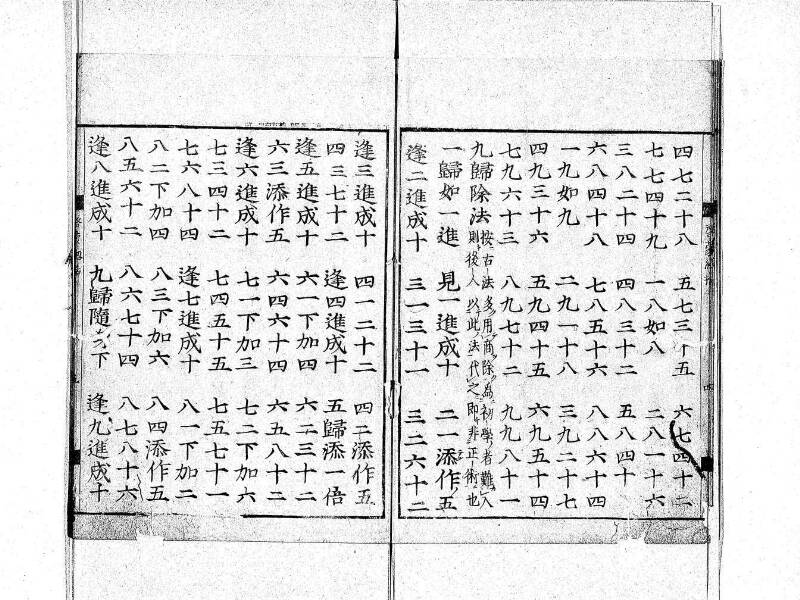 四七二十八 五七三十五 六七四十二
七七四十九 一八如八 二八一十六
三八二十四 四八三十二 五八四十
六八四十八 七八五十六 八八六十四
一九如九 二九一十八 三九二十七
四九三十六 五九四十五 六九五十四
七九六十三 八九七十二 九九八十一
九歸除法 按古法多用商除為初學者難入
則後人以此法代之即非正術也
一歸如一進 見一進成十 二一添作五
逢二進成十 三一三十一 三二六十二
逢三進成十 四一二十二 四二添作五
四三七十二 逢四進成十 五歸添一倍
逢五進成十 六一下加四 六二三十二
六三添作五 六四六十四 六五八十二
逢六進成十 七一下加三 七二下加六
七三四十二 七四五十五 七五七十一
七六八十四 逢七進成十 八一下加二
八二下加四 八三下加六 八四添作五
八五六十二 八六七十四 八七八十六
逢八進成十 九歸隨身下 逢九進成十